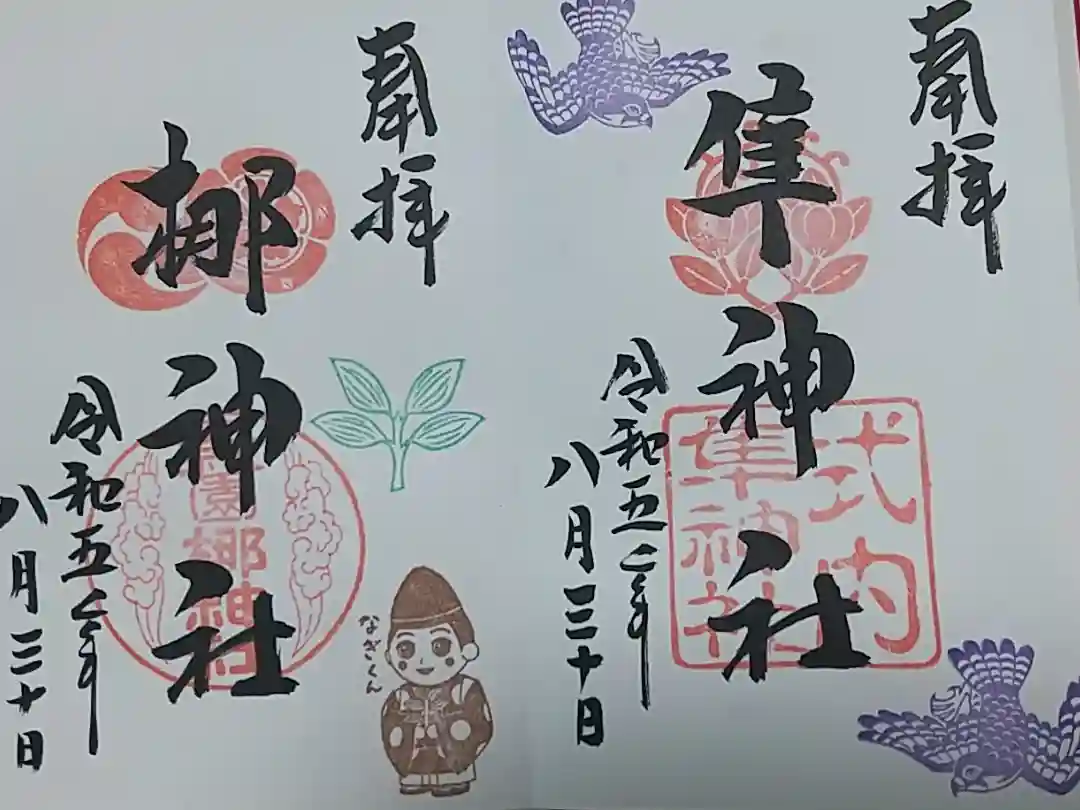 奉拝
隼神社
令和五年
八月三十日
式内
隼神社
奉拝
梛神社
令和五年
八月三十日
園梛神社
なぎくん